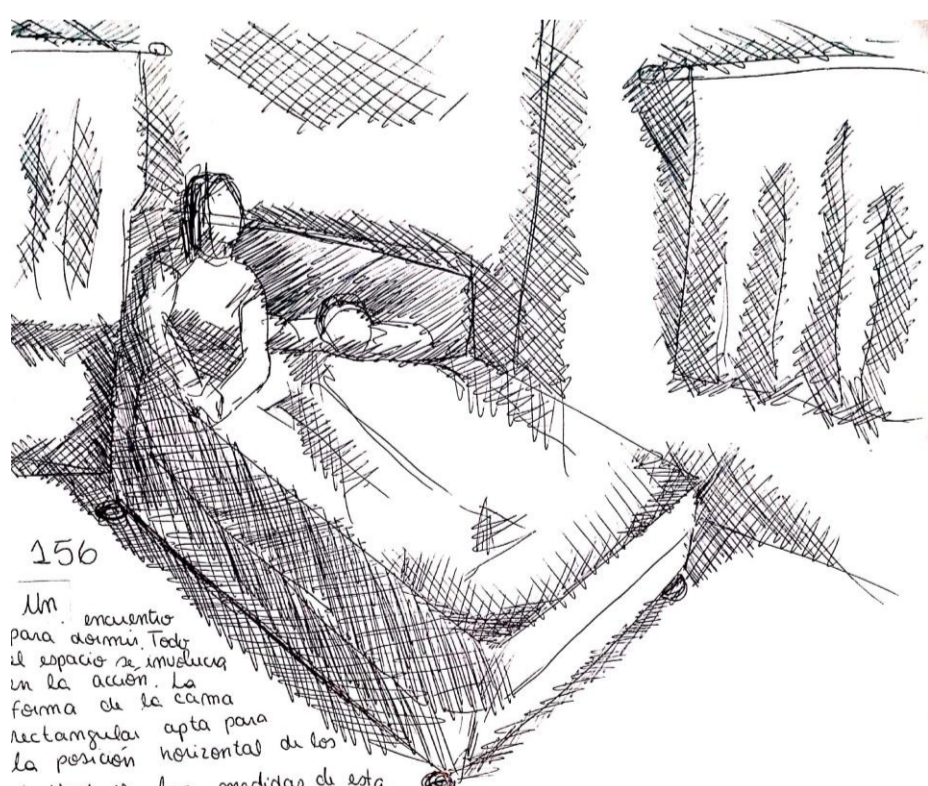 156
Un
encuentro
para dormir. Todo
el espacio se involucra
en la acción. La
forma de la cama
rectangular apta para
la posición horizontal de los
medidas de esta